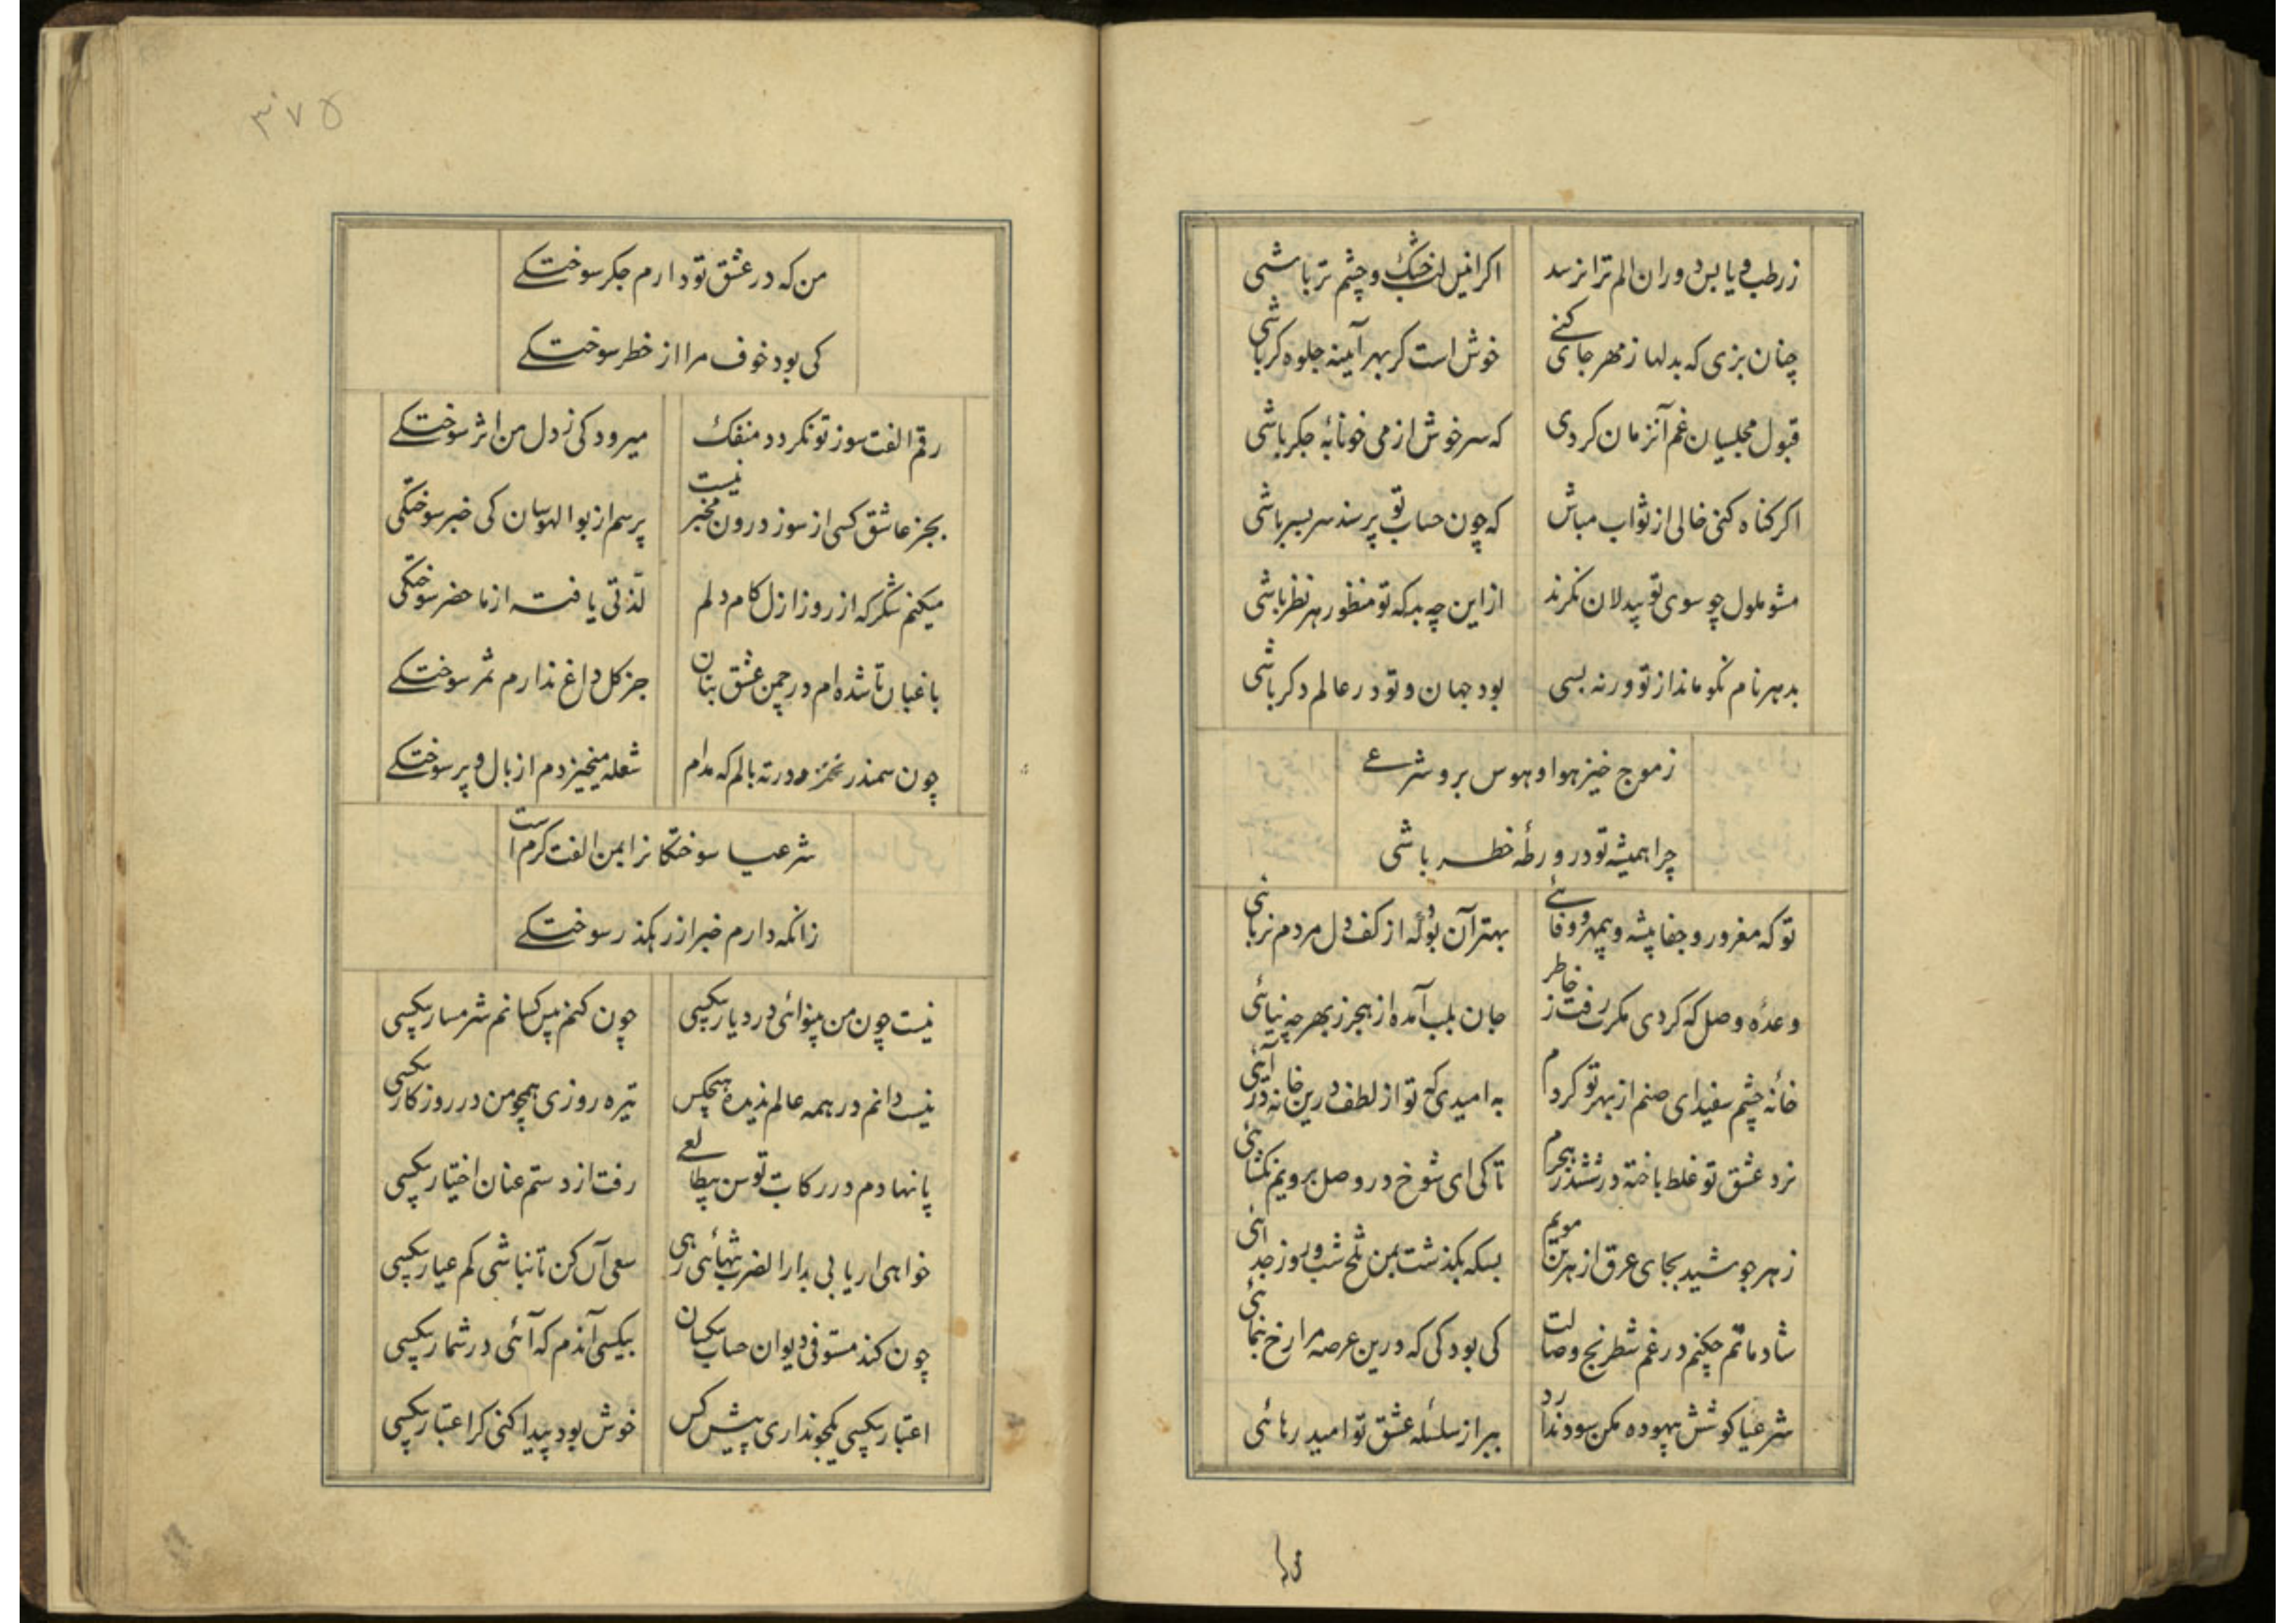 ز رطب و یابس دوران الم ترا نرسد اکر انیس لب خشک و چشم تر باشی
چنان بزی که بدلها ز مهر جای کنے خوش است کر بهر آیینه جلوه کر باشی
قبول مجلسیان غم آنزمان کردی که سرخوش از می خونابهٔ جکر باشی
اکر کناه کنی خالی از ثواب مباش که چون حساب تو پرسند سر بسر باشی
مشو ملول چو سوی تو بیدلان نکرند از این چه به که تو منظور هر نظر باشی
بدهر نام نکو ماند از تو ورنه بسی بود جهان و تو در عالم دکر باشی
ز موج خیز هوا و هوس برو شرعے
چرا همیشه تو در ورطهٔ خطر باشی
تو که مغرور و جفا پیشه و بیمهر و وفائے بهتر آن بود که از کف دل مردم نربائی
وعدهٔ وصل که کردی مکرت رفت ز خاطر جان بلب آمده از هجر ز بهر چه نیائی
خانهٔ چشم سفید ای صنم از بهر تو کردم به امیدی که تو از لطف درین خانه در آئی
نرد عشق تو غلط باخته در ششدر هجرم تا کی ای شوخ در وصل برویم نکشائی
زهر جوشید بجای عرق از هر بن مویم بسکه بکذشت بمن تلخ شب و روز جدائی
شاد ماتم چکنم در غم شطرنج وصالت کی بود کی که درین عرصه مرا رخ بنمائی
شرعیا کوشش بیهوده مکن سود ندارد ببر از سلسلهٔ عشق تو امید رهائی
۳۷۵
من که در عشق تو دارم جکر سوختکے
کی بود خوف مرا از خطر سوختکے
رقم الفت سوز تو نکردد منفک میرود کی ز دل من اثر سوختکے
بجز عاشق کسی از سوز درون مخبر نیست پرسم از بوالهوسان کی خبر سوختکی
میکنم شکر که از روز ازل کام دلم لذتی یافته از ماحضر سوختکی
باغبان تا شده ام در چمن عشق بتان جز کل داغ ندارم ثمر سوختکے
چون سمندر نخزد ورنه بالم که مدام شعله میخیزدم از بال و پر سوختکے
شرعیا سوختکانرا ایمن الفت کرم است
زانکه دارم خبر از رهکذر سوختکے
نیست چون من بینوائی در دیار بیکسی چون کنم پس کسانم شرمسار بیکسی
نیست دانم در همه عالم ندیده هیچکس تیره روزی همچو من در روزکار بیکسی
پا نهادم در رکاب توسن بیطالعے رفت از دستم عنان اختیار بیکسی
خواهی ار یابی بدار الضرب تنهائی رهی سعی آن کن تا نباشی کم عیار بیکسی
چون کند مستوفی دیوان حساب بیکسان بیکسی آندم که آئی در شمار بیکسی
اعتبار بیکسی یکجو نداری پیش کس خوش بود پیدا کنی کر اعتبار بیکسی